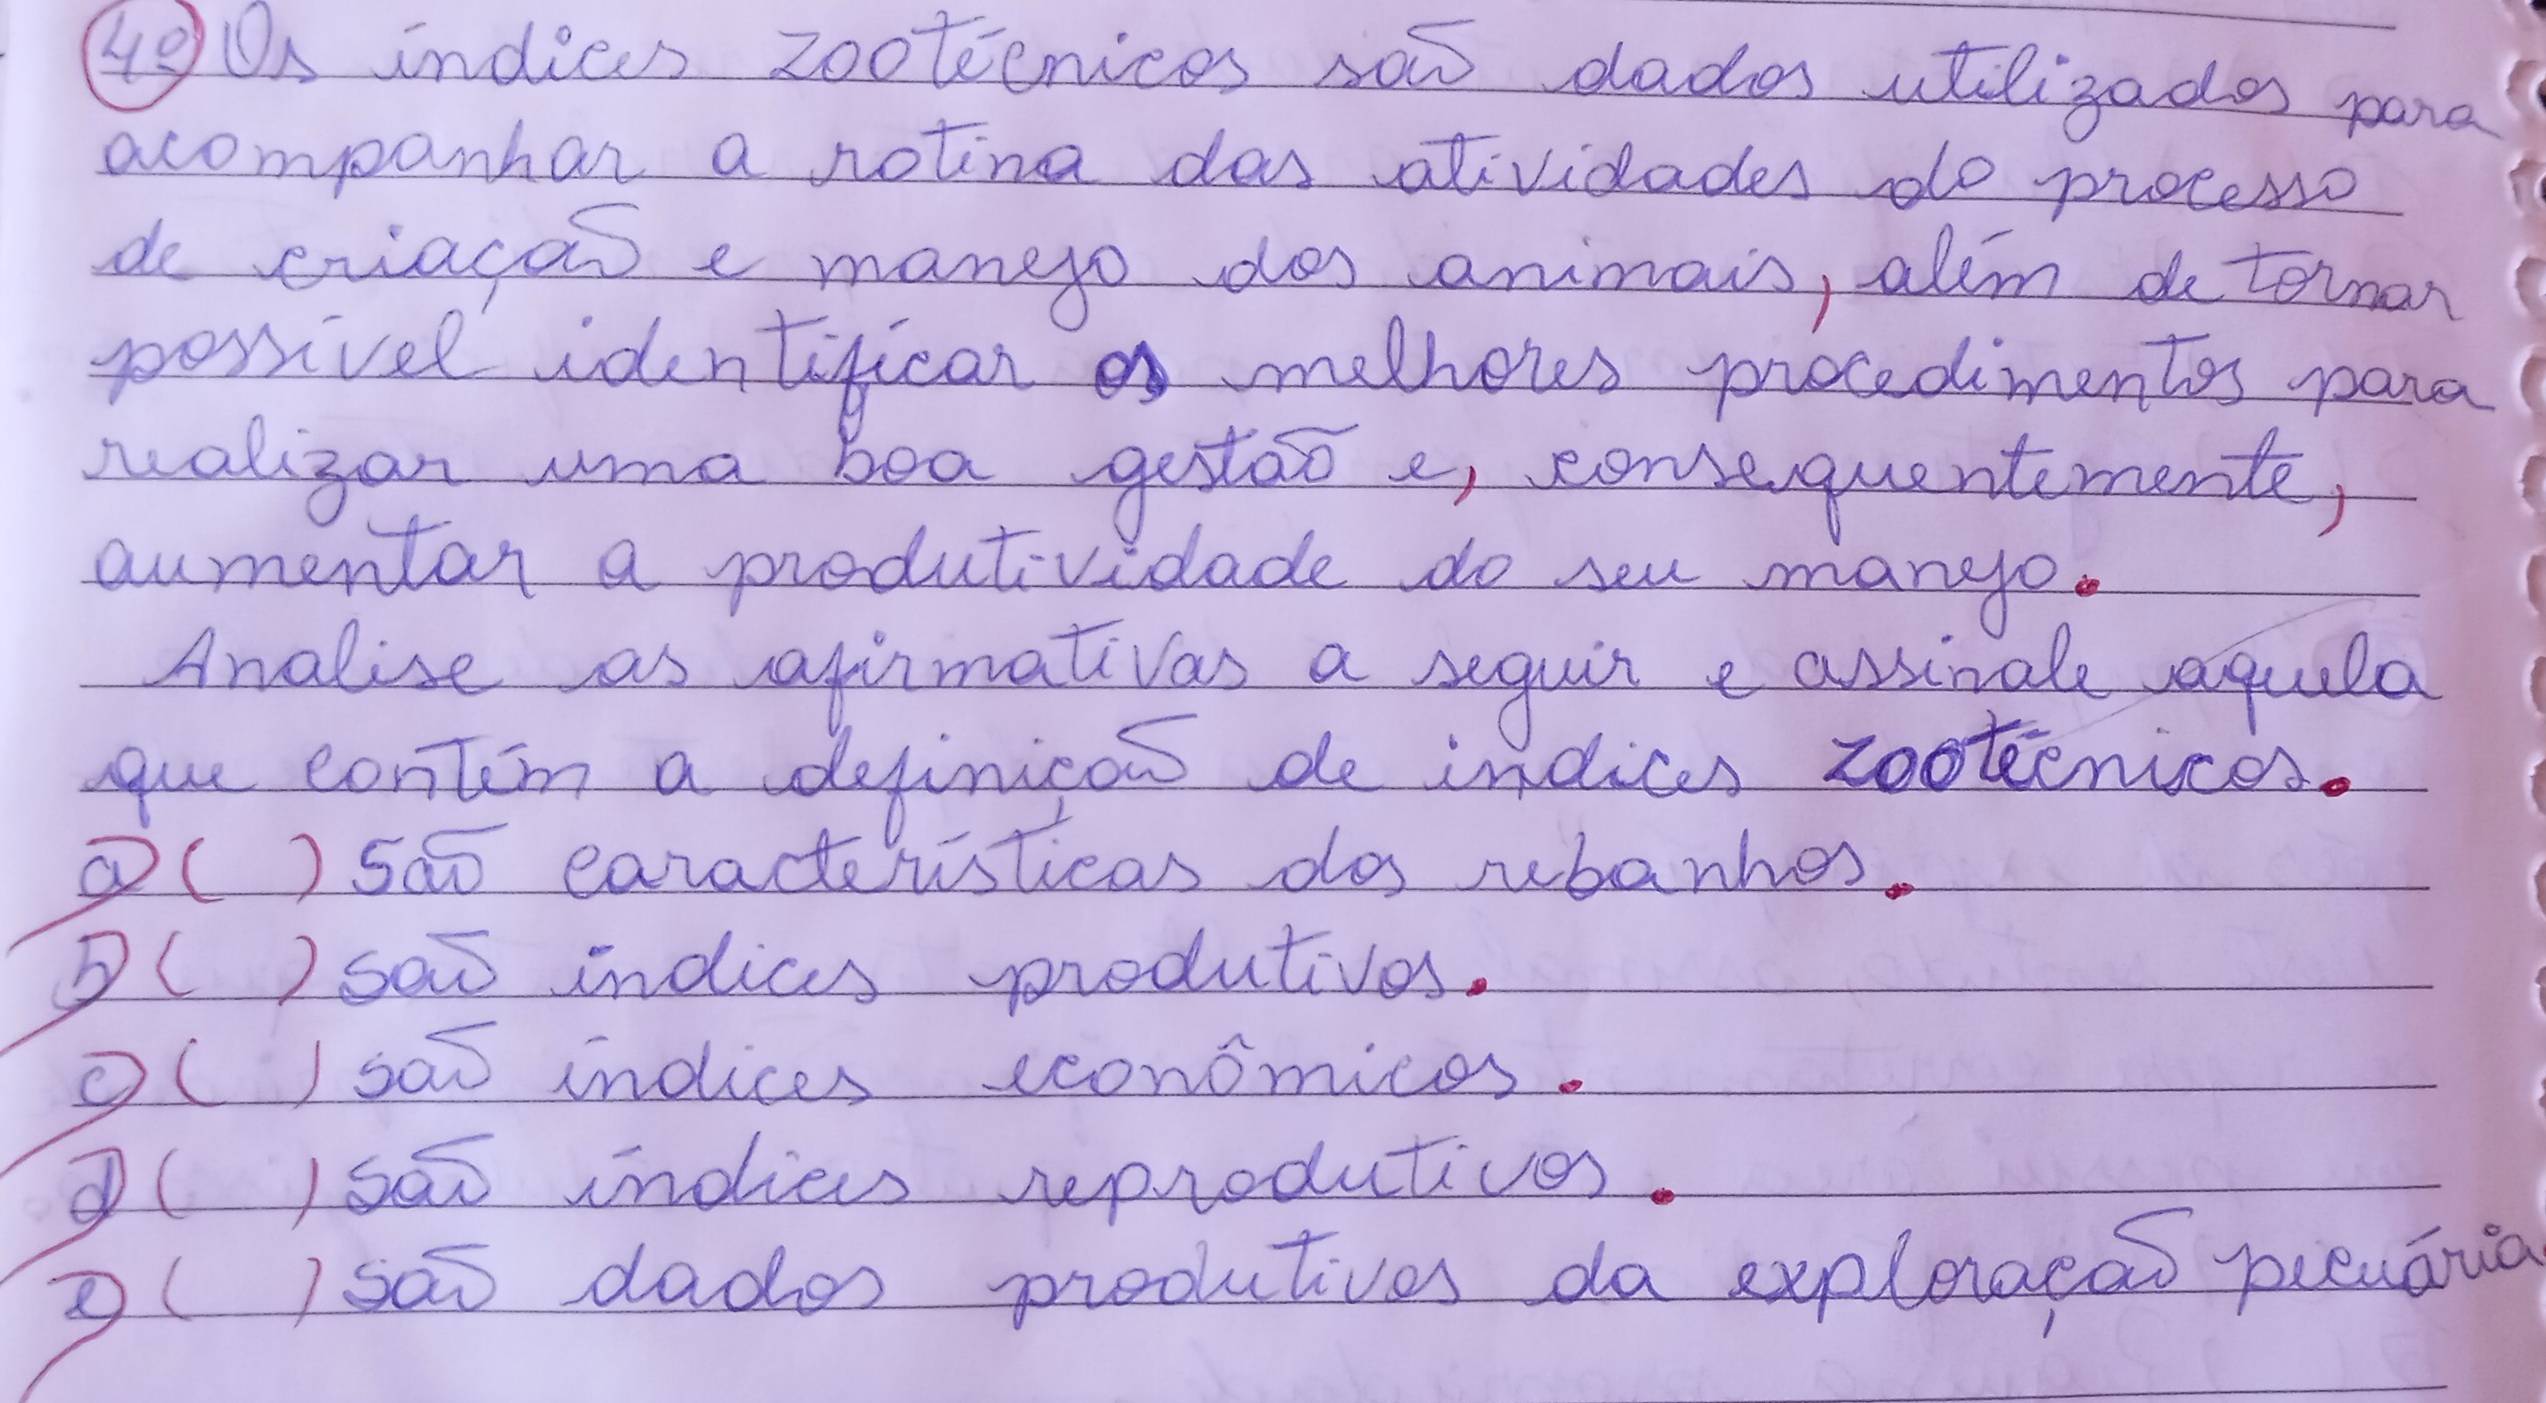 4º Os índices zootécnicos são dados utilizados para
acompanhar a rotina das atividades do processo
de criação e manejo dos animais, além de tornar
possível identificar os melhores procedimentos para
realizar uma boa gestão e, consequentemente,
aumentar a produtividade do seu manejo.
Analise as afirmativas a seguir e assinale aquela
que contém a definição de índices zootécnicos.
a) ( ) São características dos rebanhos.
b) ( ) são índices produtivos.
c) ( ) são índices econômicos.
d) ( ) são índices reprodutivos.
e) ( ) são dados produtivos da exploração pecuária